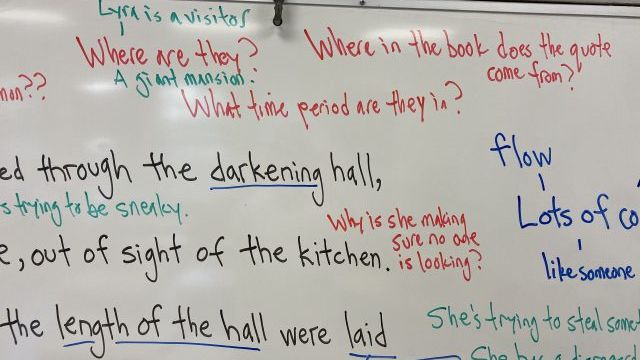 Lyra is a visitor
Where are they?
A giant mansion.
Where in the book does the quote
come from?
non??
What time period are they in?
ed through the darkening hall,
s trying to be sneaky.
flow
Lots of co
like someone
Why is she making
sure no one
is looking?
e, out of sight of the kitchen.
She's trying to steal somet
the length of the hall were laid
She has a